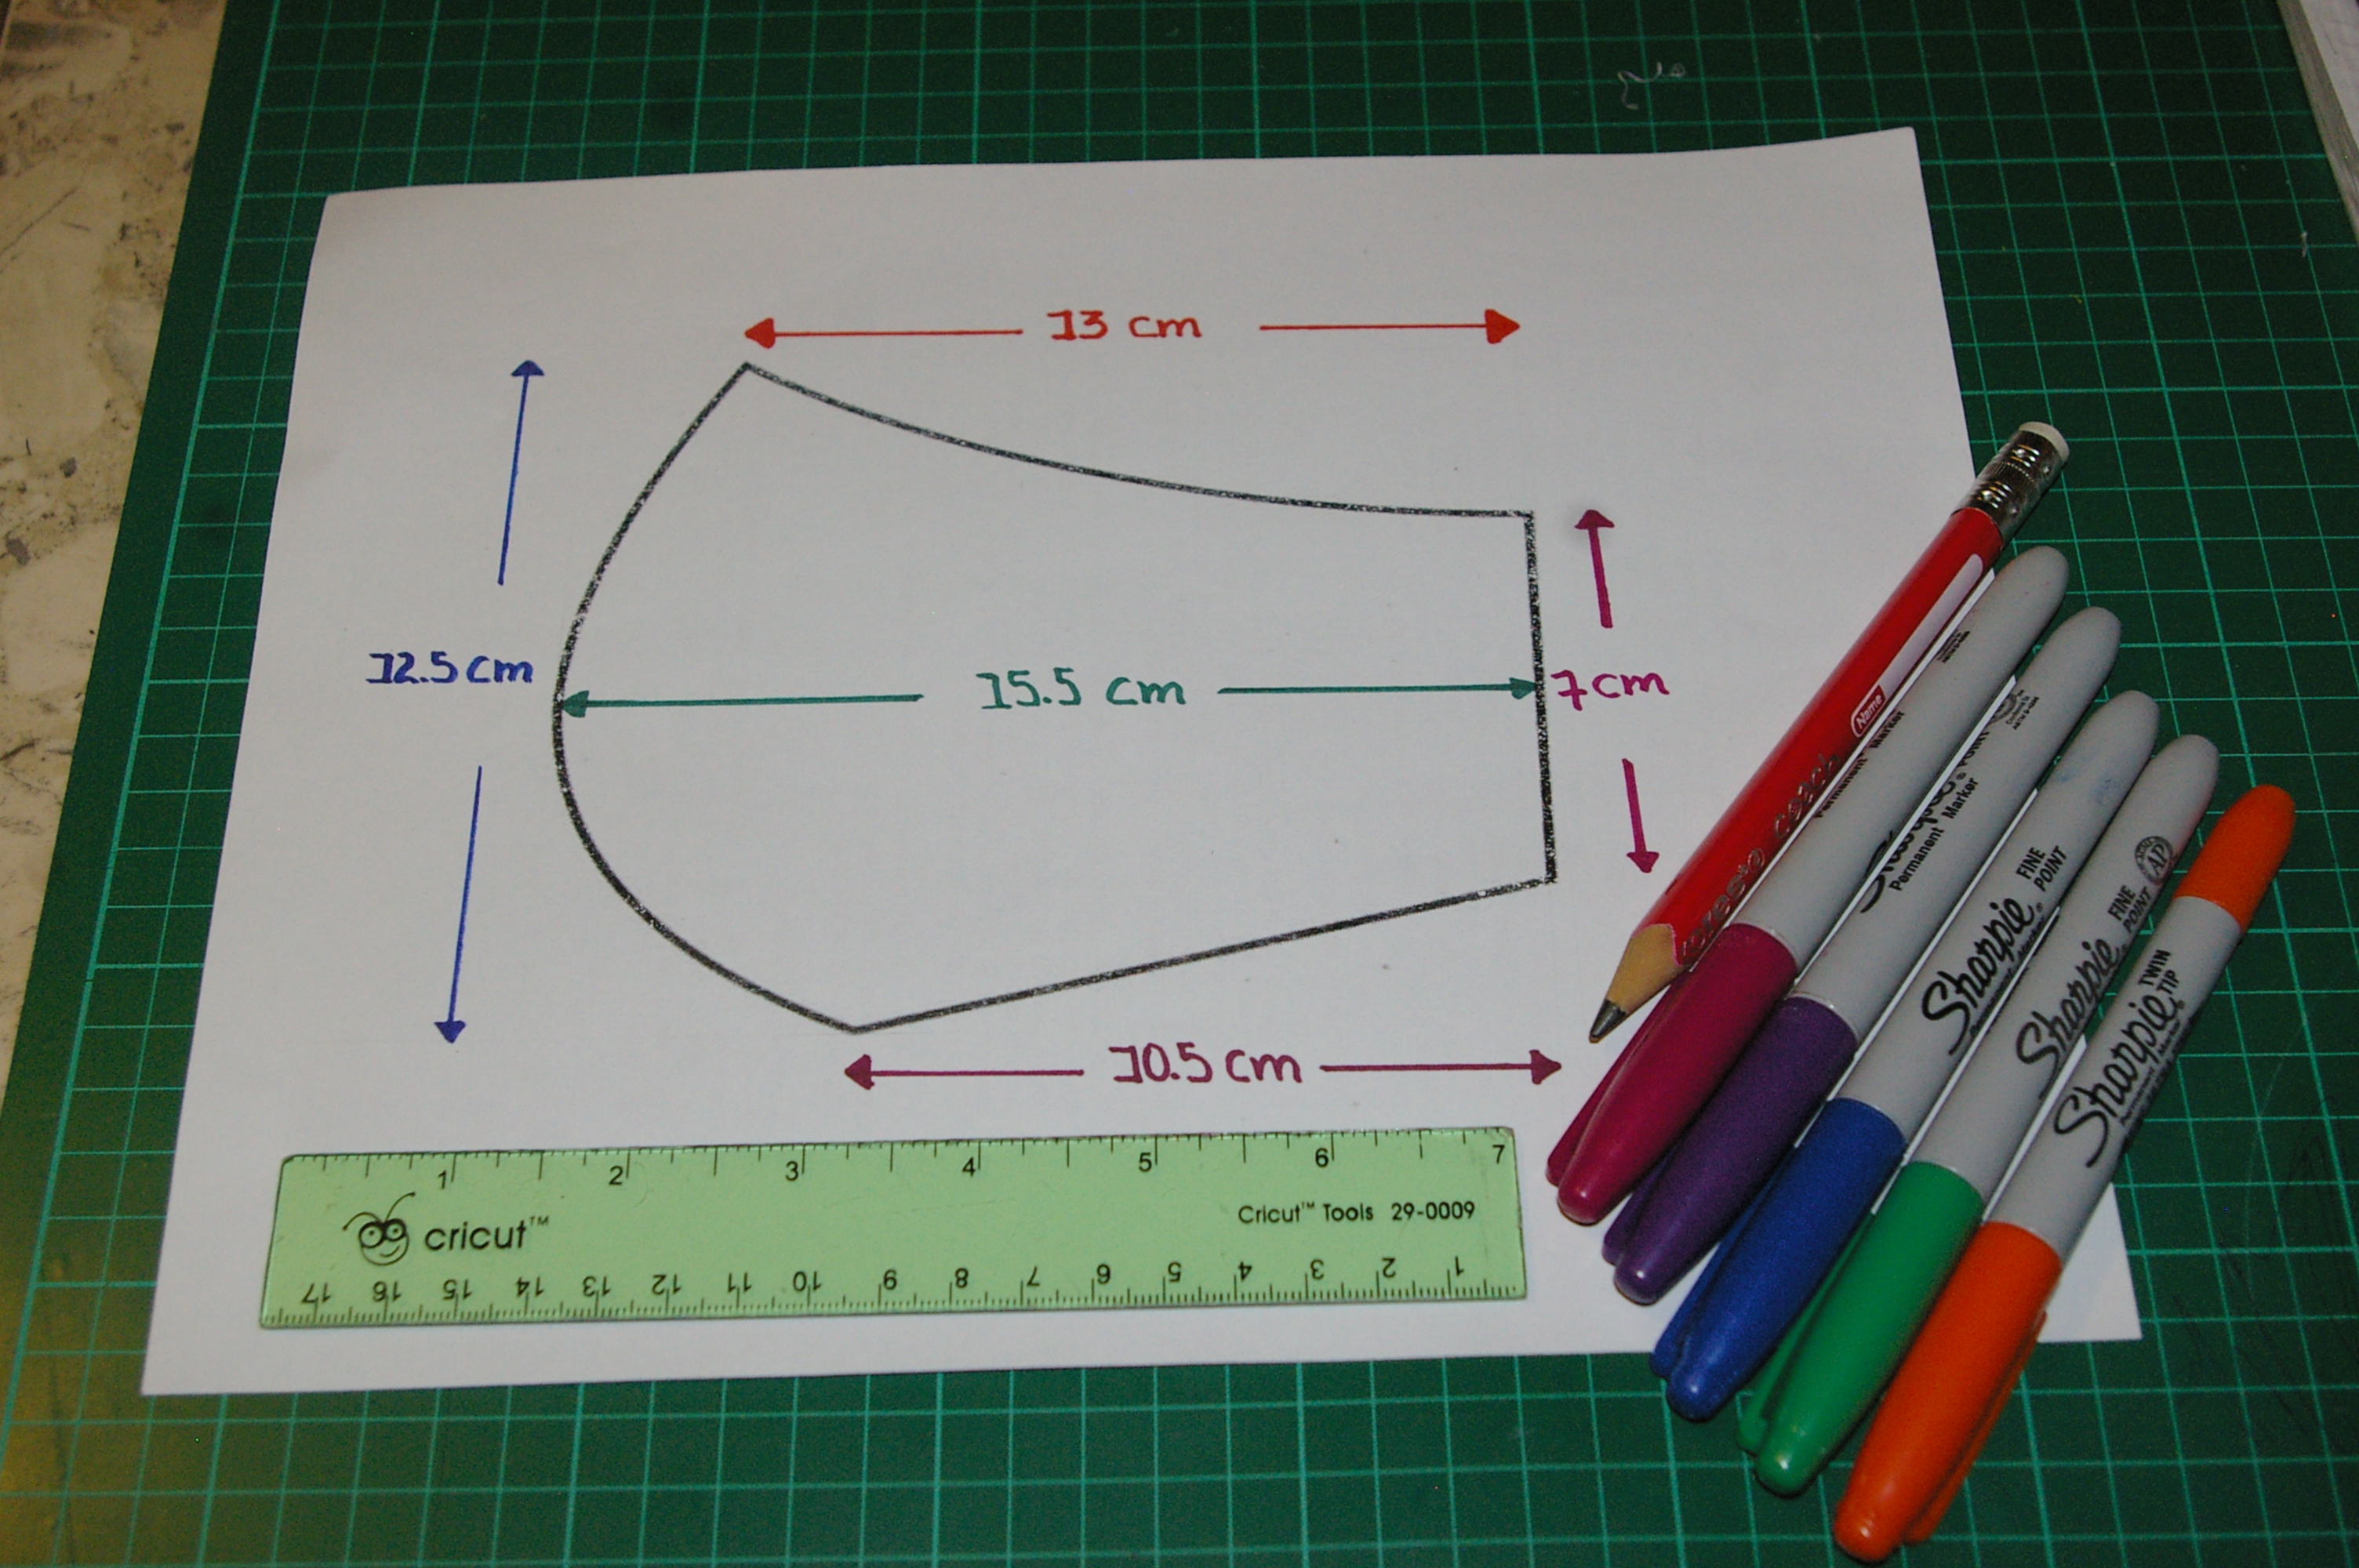 13 cm
12.5 cm
15.5 cm
7 cm
10.5 cm
1 2 3 4 5 6 7
cricut™
Cricut™ Tools 29-0009
17 16 15 14 13 12 11 10 9 8 7 6 5 4 3 2 1
Name
Permanent Marker
Permanent Marker
Sharpie
FINE
POINT
Sharpie
FINE
POINT
AP
Sharpie
TWIN
TIP